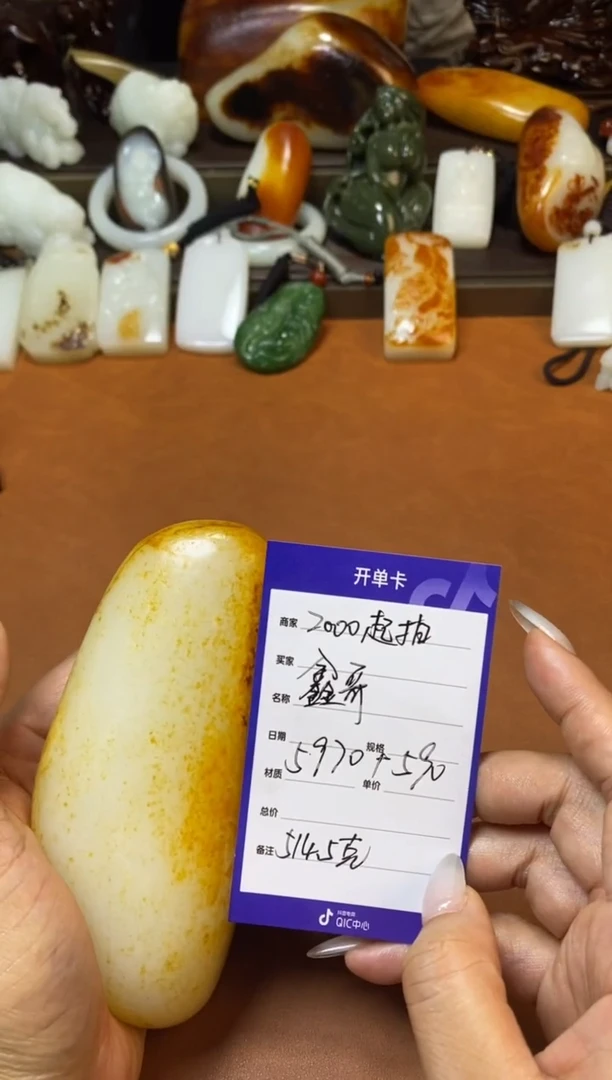 开单卡
商家 2000起拍
买家 鑫哥
名称
日期 规格
5970+5%
材质 单价
总价
备注 514.5克
抖音电商
QIC中心